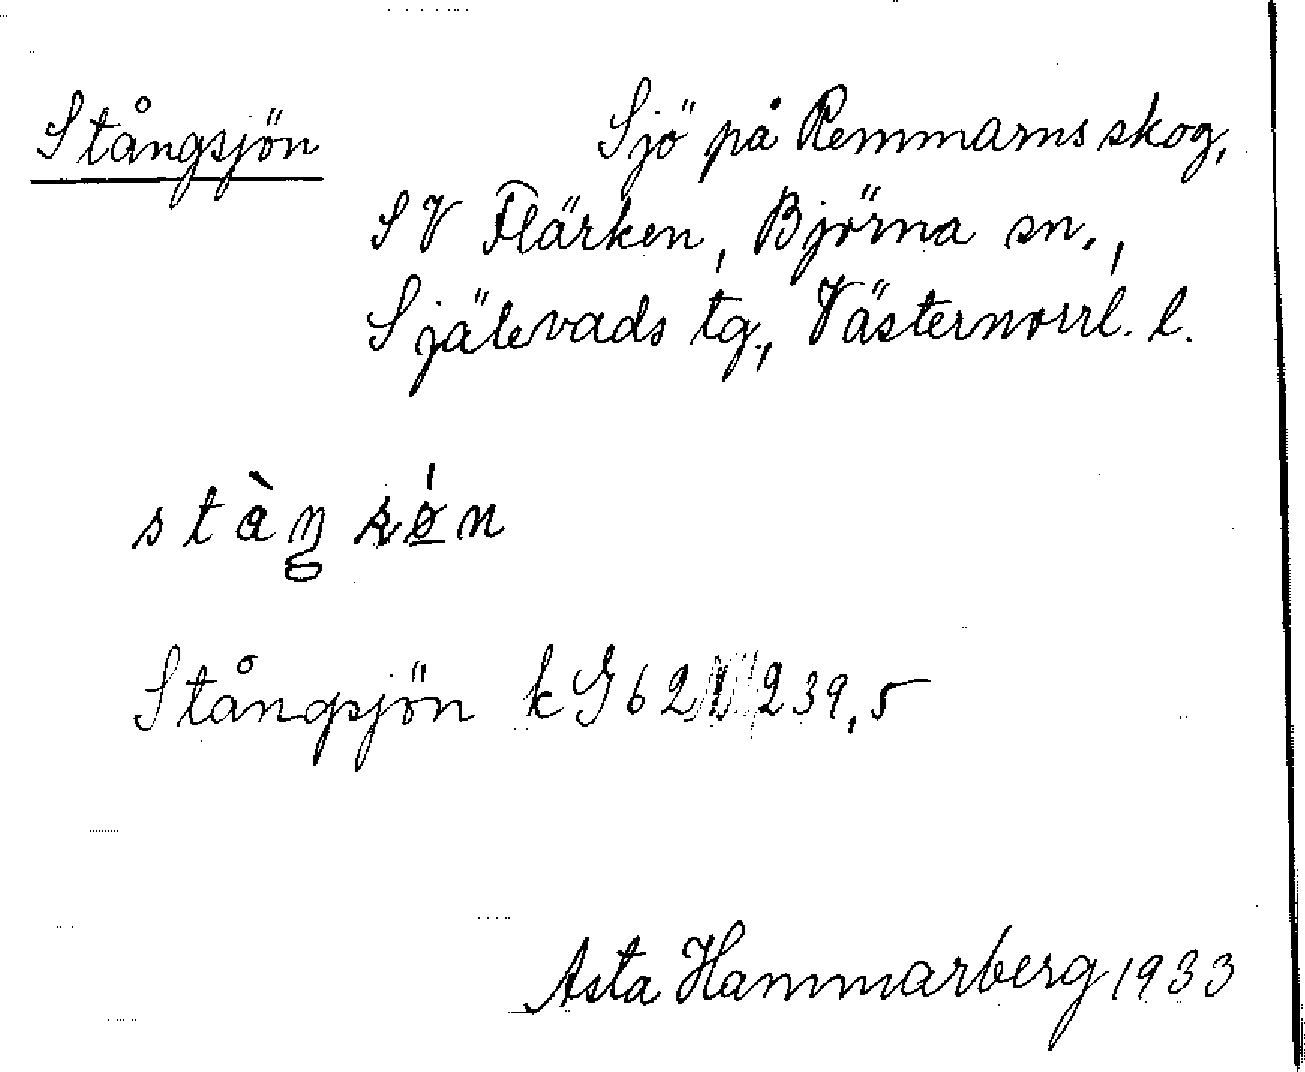 Stångsjön Sjö på Remmarns skog,
SV Flärken, Björna sn.,
Själevads tg., Västernorrl. l.
Stångsjön kG62 239,5
Asta Hammarberg 1933